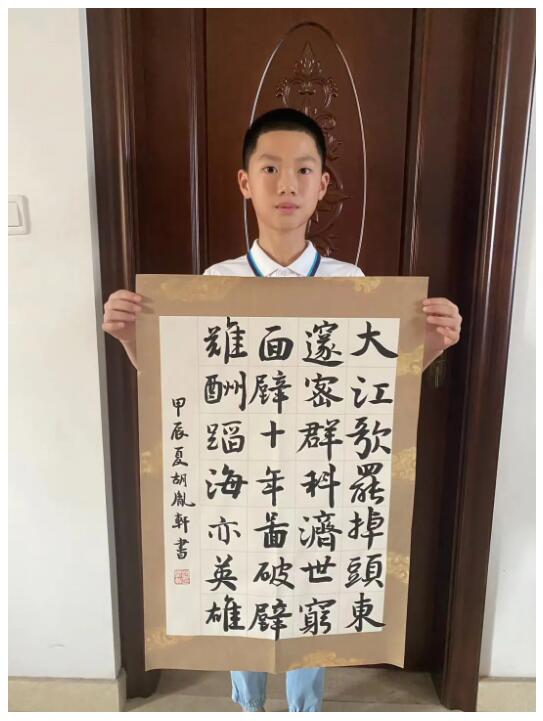 大江歌罷掉頭東
邃密群科濟世窮
面壁十年啚破壁
難酬蹈海亦英雄
甲辰夏胡胤軒書